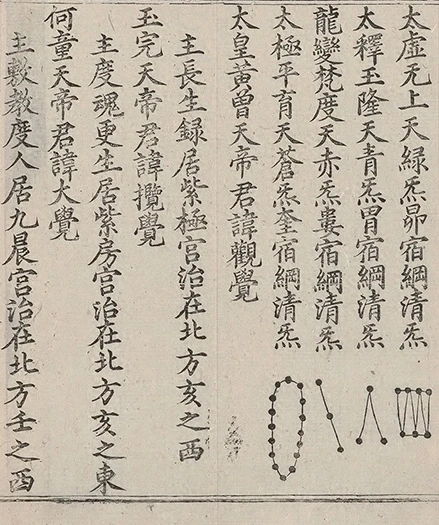 太虛无上天綠炁昴宿綱清炁
太釋玉隆天青炁胃宿綱清炁
龍變梵度天赤炁婁宿綱清炁
太極平育天蒼炁奎宿綱清炁
太皇黃曾天帝君諱觀覺
主長生録居紫極宮治在北方亥之西
玉完天帝君諱攬覺
主度魂更生居紫房宮治在北方亥之東
何童天帝君諱大覺
主敷教度人居九晨宮治在北方壬之西